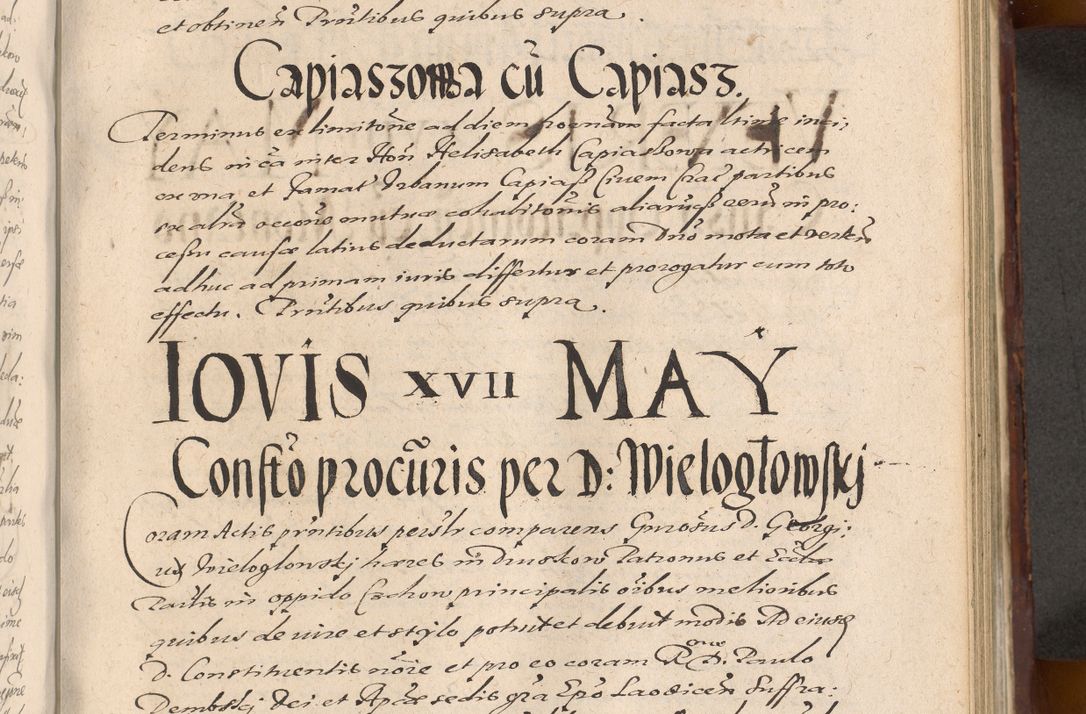 et obtineñ Pñtibus quibus supra.
Capiaszowa cũ Capiasz.
Terminus ex limitoñe ad diem hodiernam facta ltime inci,
dens in cã inter Hoñ Helisabeth Capiaszowa actricem
ex vna, et Famat Vrbanum Capiasz Ciuem Crac partibus
ex altra occoñe mutuæ cohabitoñis aliarumqz rerũ in pro:
cessu causæ latius deductarum coram Dño mota et verteñ
adhuc ad primam iuris differtur et prorogatur cum toto
effectu. Pñtibus quibus supra.
IOVIS XVII MAY
Constõ procũris per D: Wielogłowskj
Coram Actis pñtibus persĩr comparens Gnrosus D. Georgi,
us Wieloglowskj hæres in Druskow Patronus et Eccliæ
Paralis in oppido Czchow principalis oĩbus melioribus
quibus de iure et stylo potuit et debuit modis Ad eiusd
D. Constituentis noĩe et pro eo coram R<sup>mo</sup> D. Paulo
Dembskj Dei et Aplicæ sedis gřa Epo Laodiceñ Suffra: